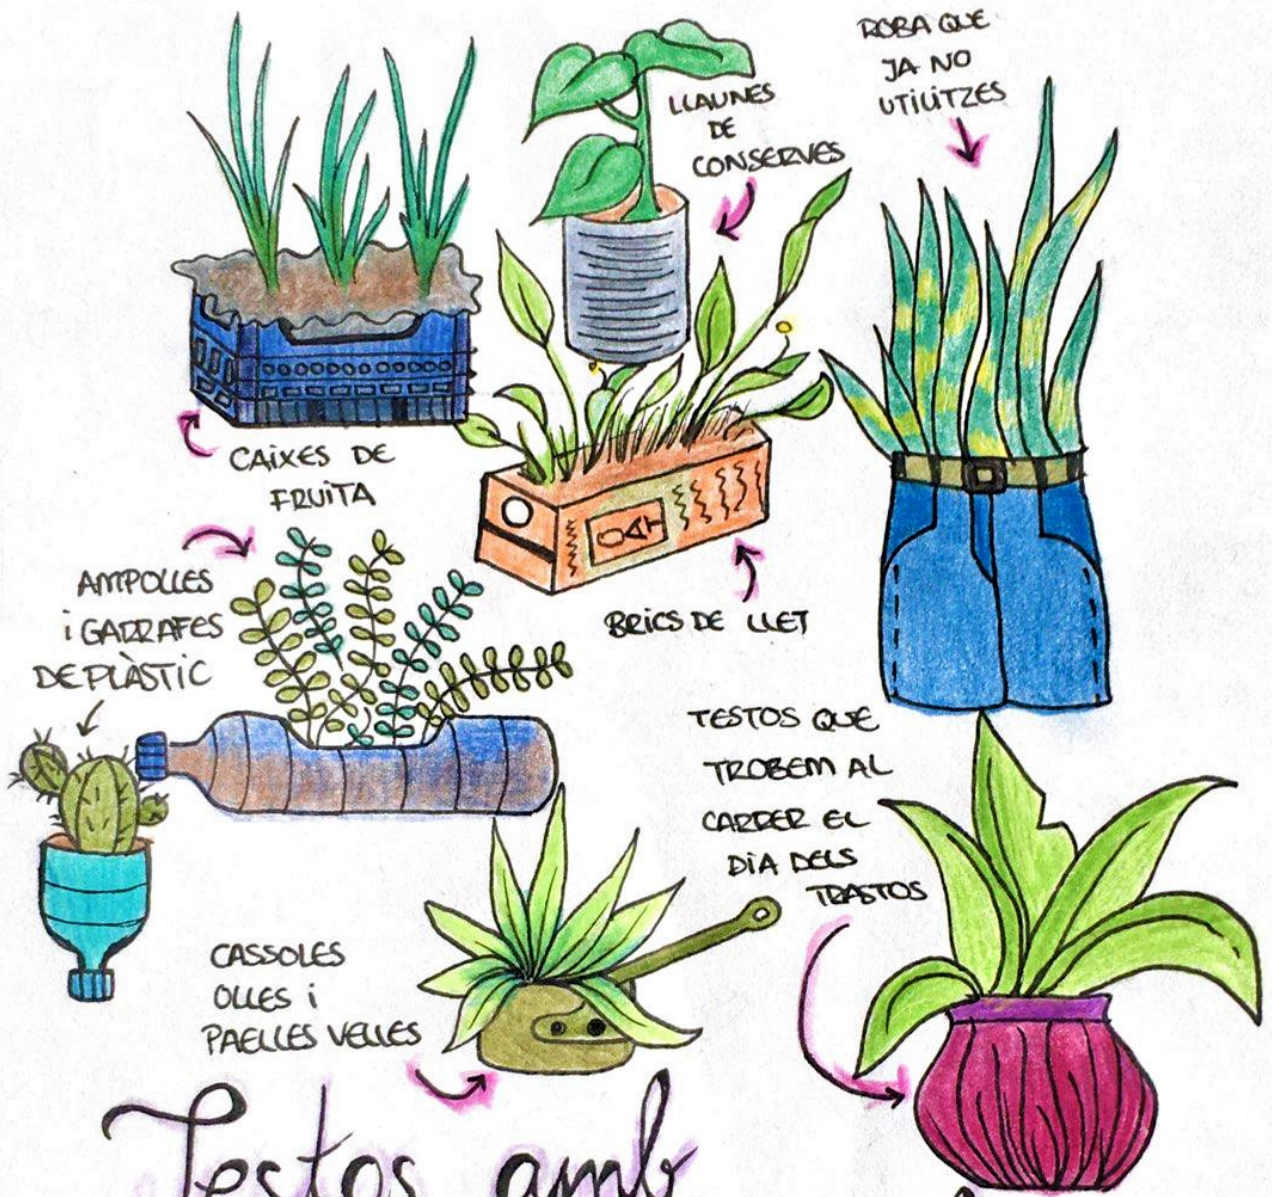 ROBA QUE
JA NO
UTILITZES
LLAUNES
DE
CONSERVES
CAIXES DE
FRUITA
AMPOLLES
i GARRAFES
DE PLÀSTIC
OAT
BRICS DE LLET
TESTOS QUE
TROBEM AL
CARRER EL
DIA DELS
TRASTOS
CASSOLES
OLLES i
PAELLES VELLES
Testos amb